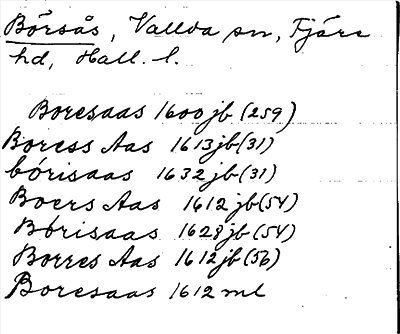 Börsås, Vallda sn, Fjäre
hd, Hall. l.
Boresaas 1600 jb (259)
Boress Aas 1613 jb (31)
börisaas 1632 jb (31)
Boers Aas 1612 jb (54)
Börisaas 1628 jb (54)
Borres Aas 1612 jb (56)
Boresaas 1612 ml